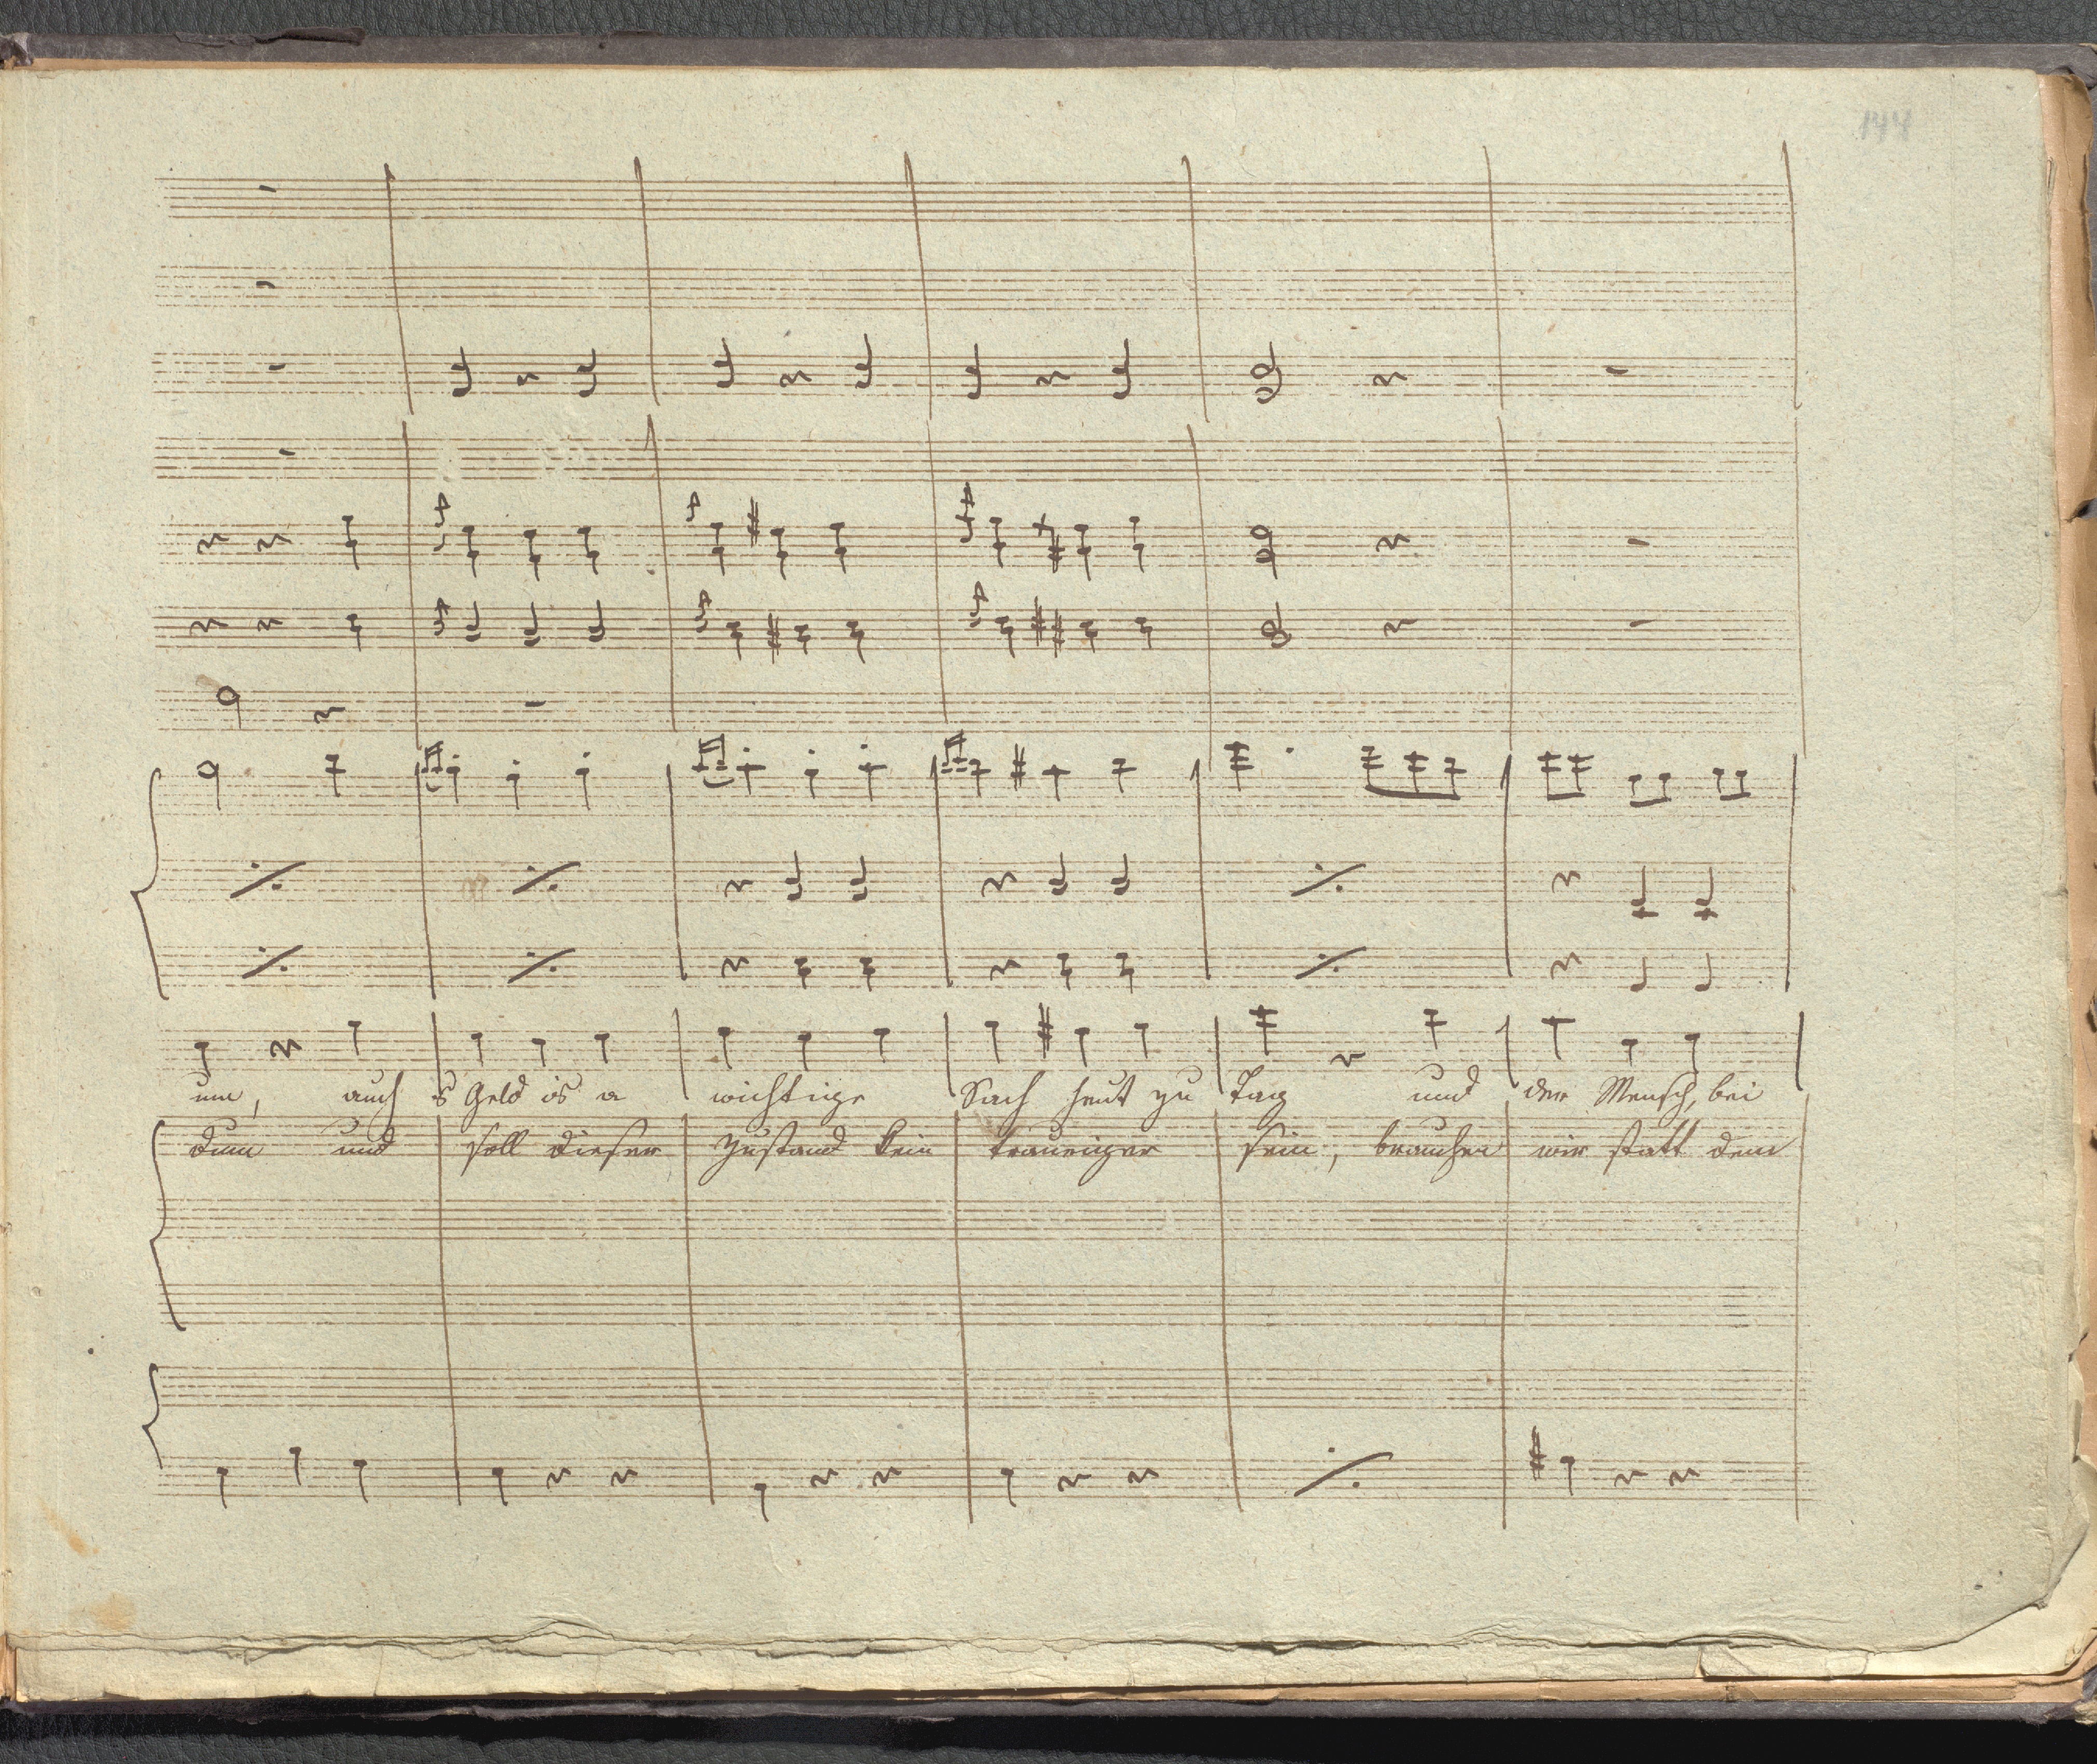 144
um, auch s Geld is a wichtige Sach heut zu Tag und der Mensch, bei
dum und soll dieser Zustand kein trauriger sein, brauchen wir statt dem